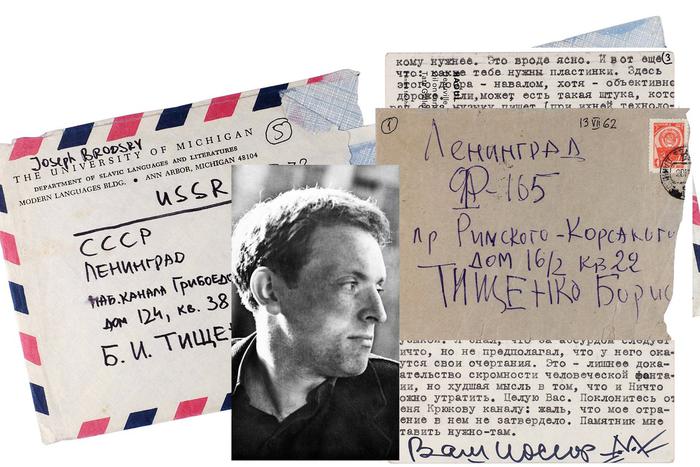 Joseph BRODSKY
THE UNIVERSITY OF MICHIGAN
DEPARTMENT OF SLAVIC LANGUAGES AND LITERATURES
MODERN LANGUAGES BLDG. • ANN ARBOR, MICHIGAN 48104
5
USSR
СССР
ЛЕНИНГРАД
НАБ. КАНАЛА ГРИБОЕД
ДОМ 124, КВ. 38
Б. И. ТИЩЕ
3
кому нужнее. Это вроде ясно. И вот еще
что: какие тебе нужны пластинки. Здесь
навалом, хотя - объективно
дороже. Или, может, есть такая штука, кото
музыку пишет (при ихней техноло
1
13 VII 62
Ленинград
Ф-165
пр Римского-Корсакого
ДОМ 16/2 КВ 22
ТИЩЕНКО Борис
знал, что за абсурдом следует
ичто, но не предполагал, что у него ока
утся свои очертания. Это - лишнее дока
ательство скромности человеческой фанта
ии, но худшая мысль в том, что и Ничто
ожно утратить. Целую Вас. Поклонитесь от
еня Крюкову каналу: жаль, что мое отра
ение в нем не затвердело. Памятник мне
тавить нужно-там.
Ваш Иосиф